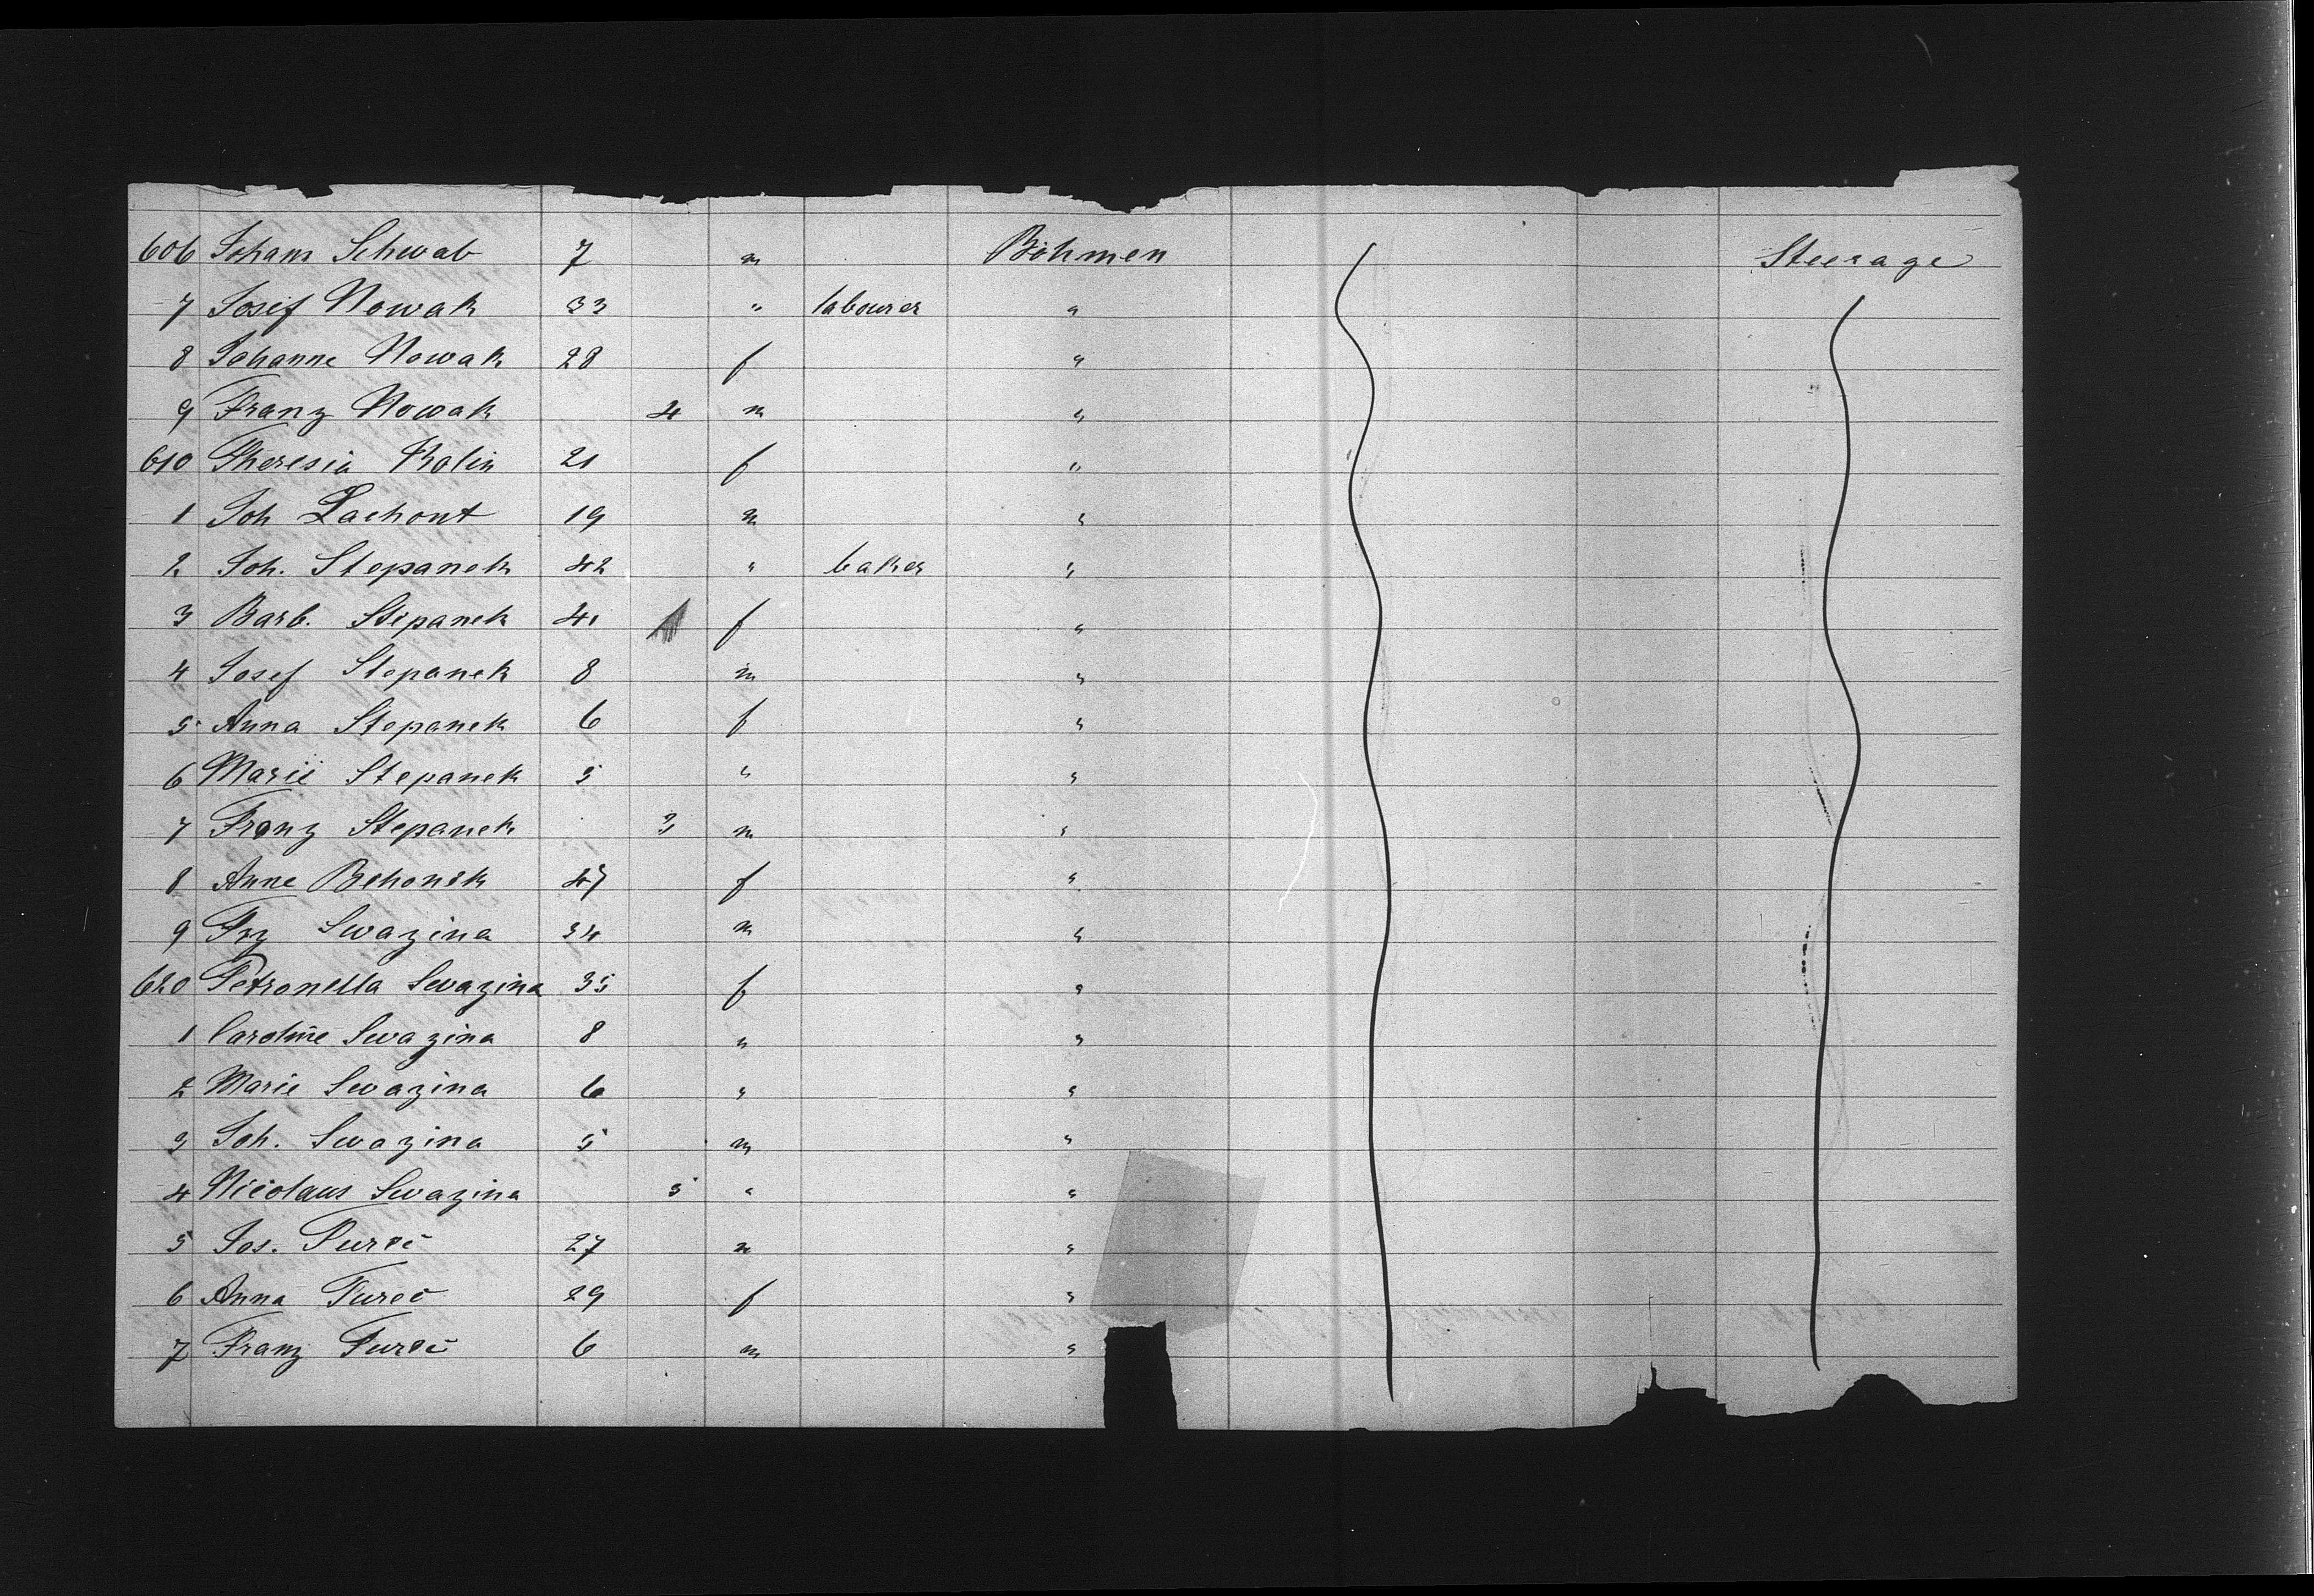 606 Joham Schwab 7 m Böhmen Steerage
7 Josif Nowak 33 " labourer "
8 Johanne Nowak 28 f "
9 Franz Nowak 4 m "
610 Theresia Kolin 21 f "
1 Joh Lachont 19 m "
2 Joh. Stepanek 42 " baker "
3 Barb. Stepanek 41 f "
4 Josef Stepanek 8 m "
5 Anna Stepanek 6 f "
6 Marie Stepanek 5 " "
7 Franz Stepanek 3 m "
8 Anne 47 f "
9 Frz Swazina 34 m "
620 Petronella Swazina 35 f "
1 Caroline Swazina 8 " "
2 Marie Swazina 6 " "
3 Joh. Swazina 5 m "
4 Nicolaus Swazina 5 " "
5 Jos. 27 m "
6 Anna 29 f "
7 Franz 6 m "